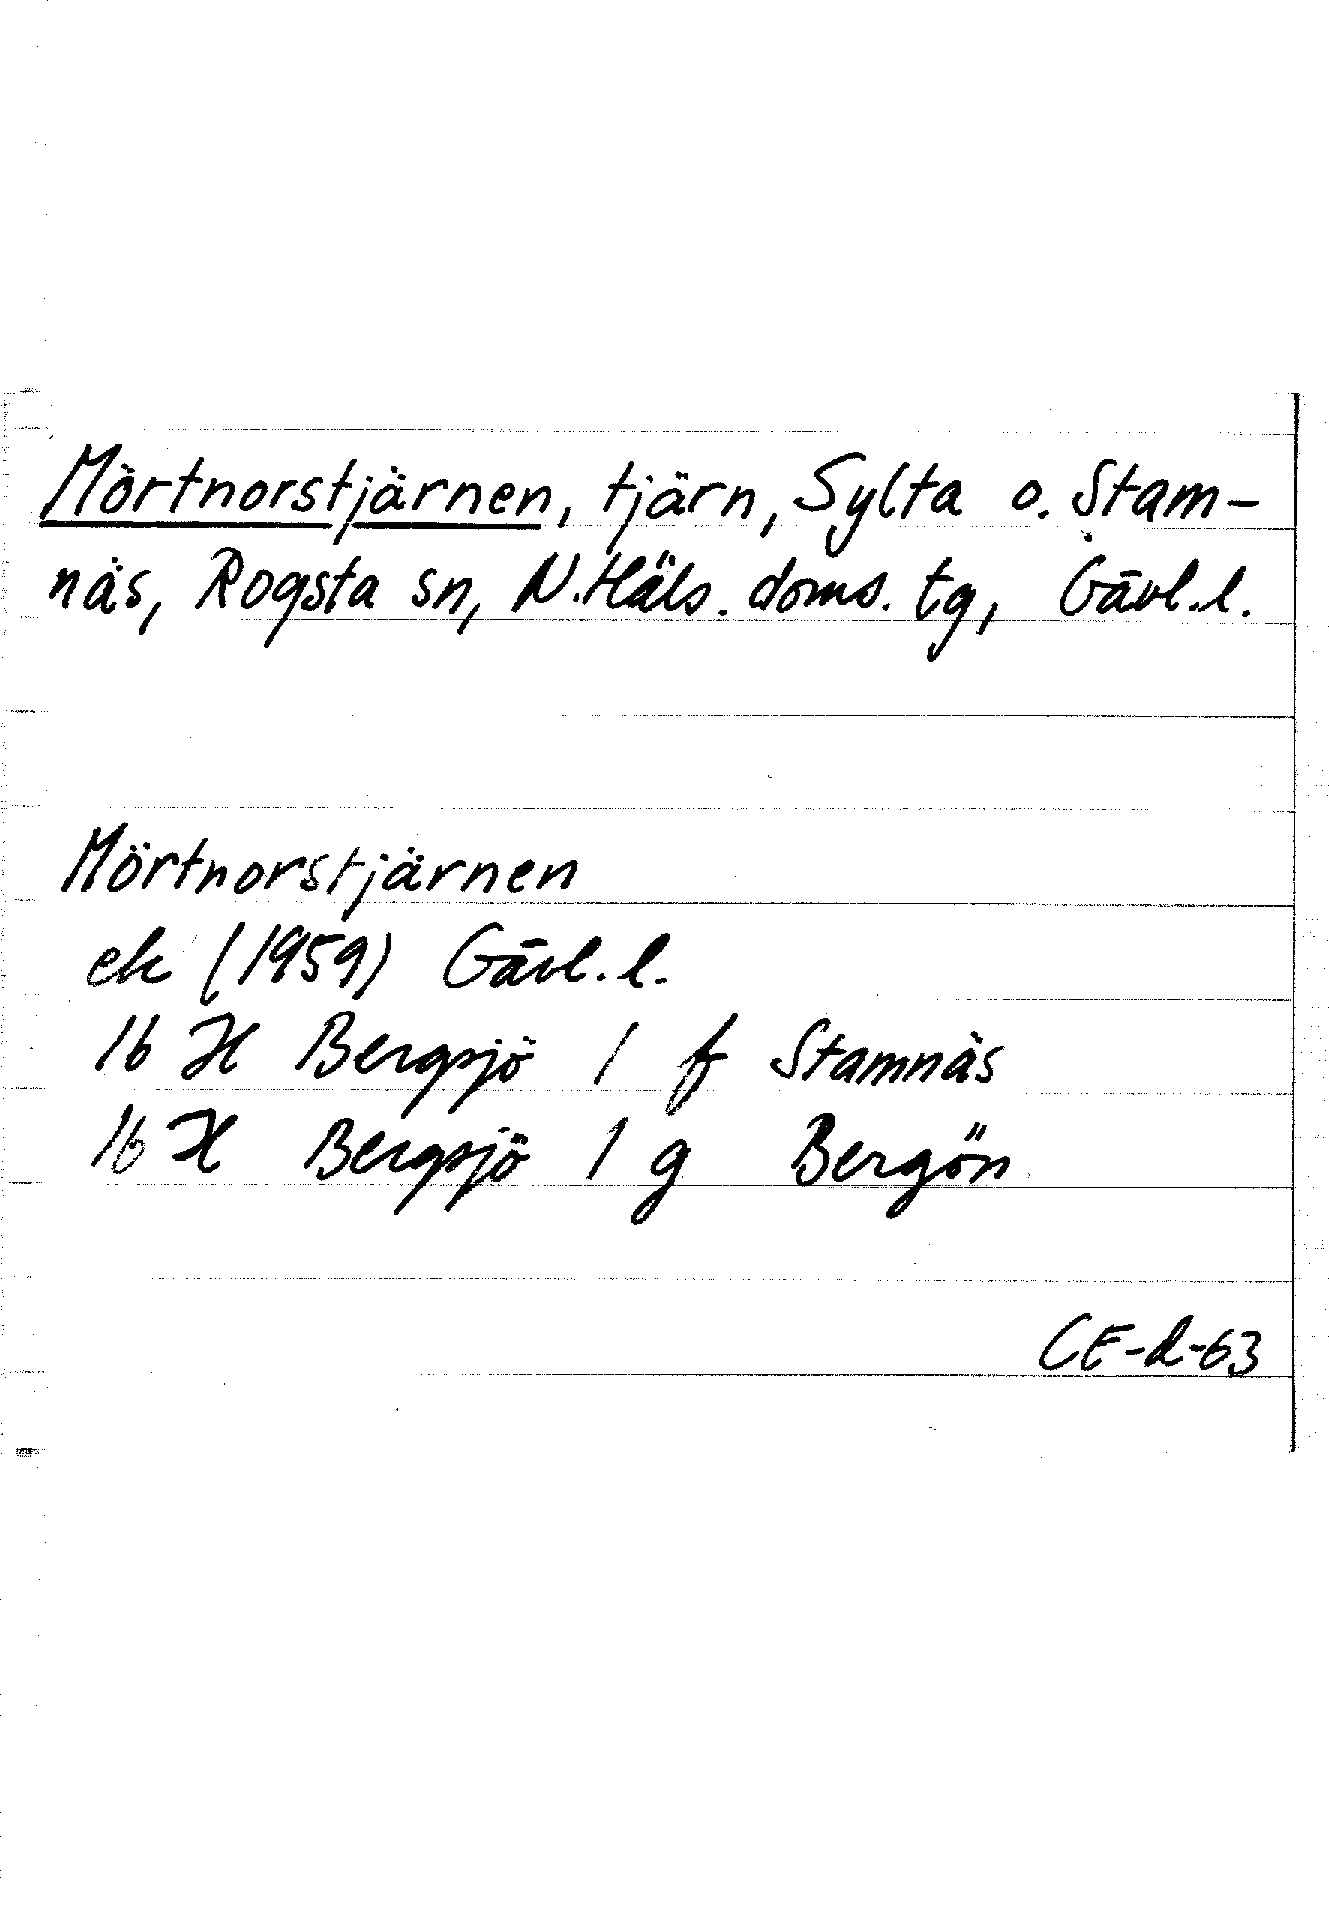 Mörtnorstjärnen, tjärn, Sylta o. Stam-
näs, Rogsta sn, N. Häls. doms. tg, Gävl. l.
Mörtnorstjärnen
ek (1959) Gävl. l.
16 H Bergsjö 1 f Stamnäs
16 H Bergsjö 1 g Bergön
CE-d-63